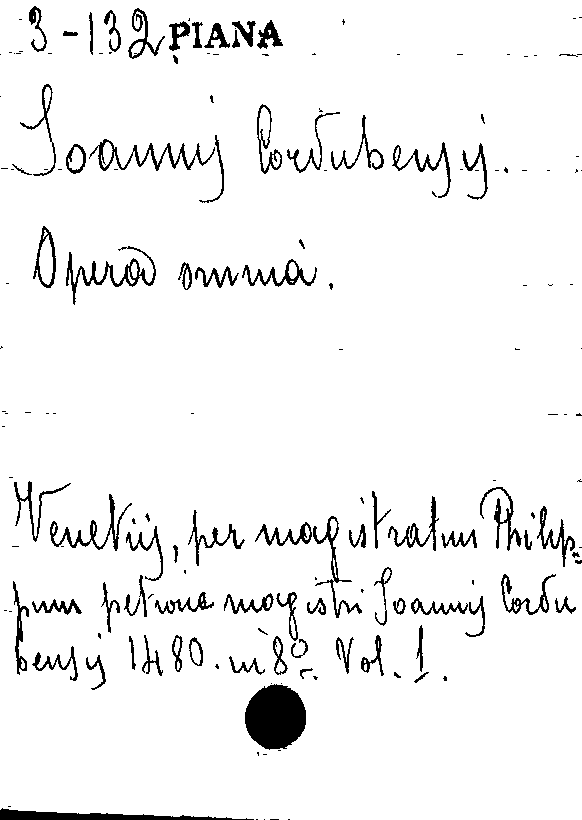 3-132 PIANA
Joannis Cordubensis.
Opera omnia.
Venetiis, per magistratum Philip-
pum petri magistri Joannis Cordu
bensis 1480. in 8º. Vol. 1.